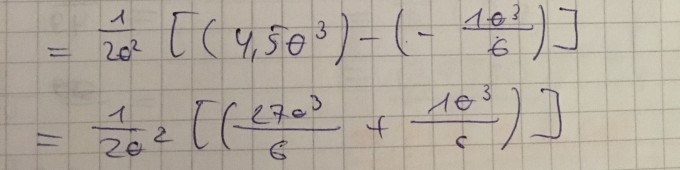 = 1/2θ² [(4,5θ³)-(- 1θ³/6)]
= 1/2θ² [(27θ³/6 + 1θ³/6)]